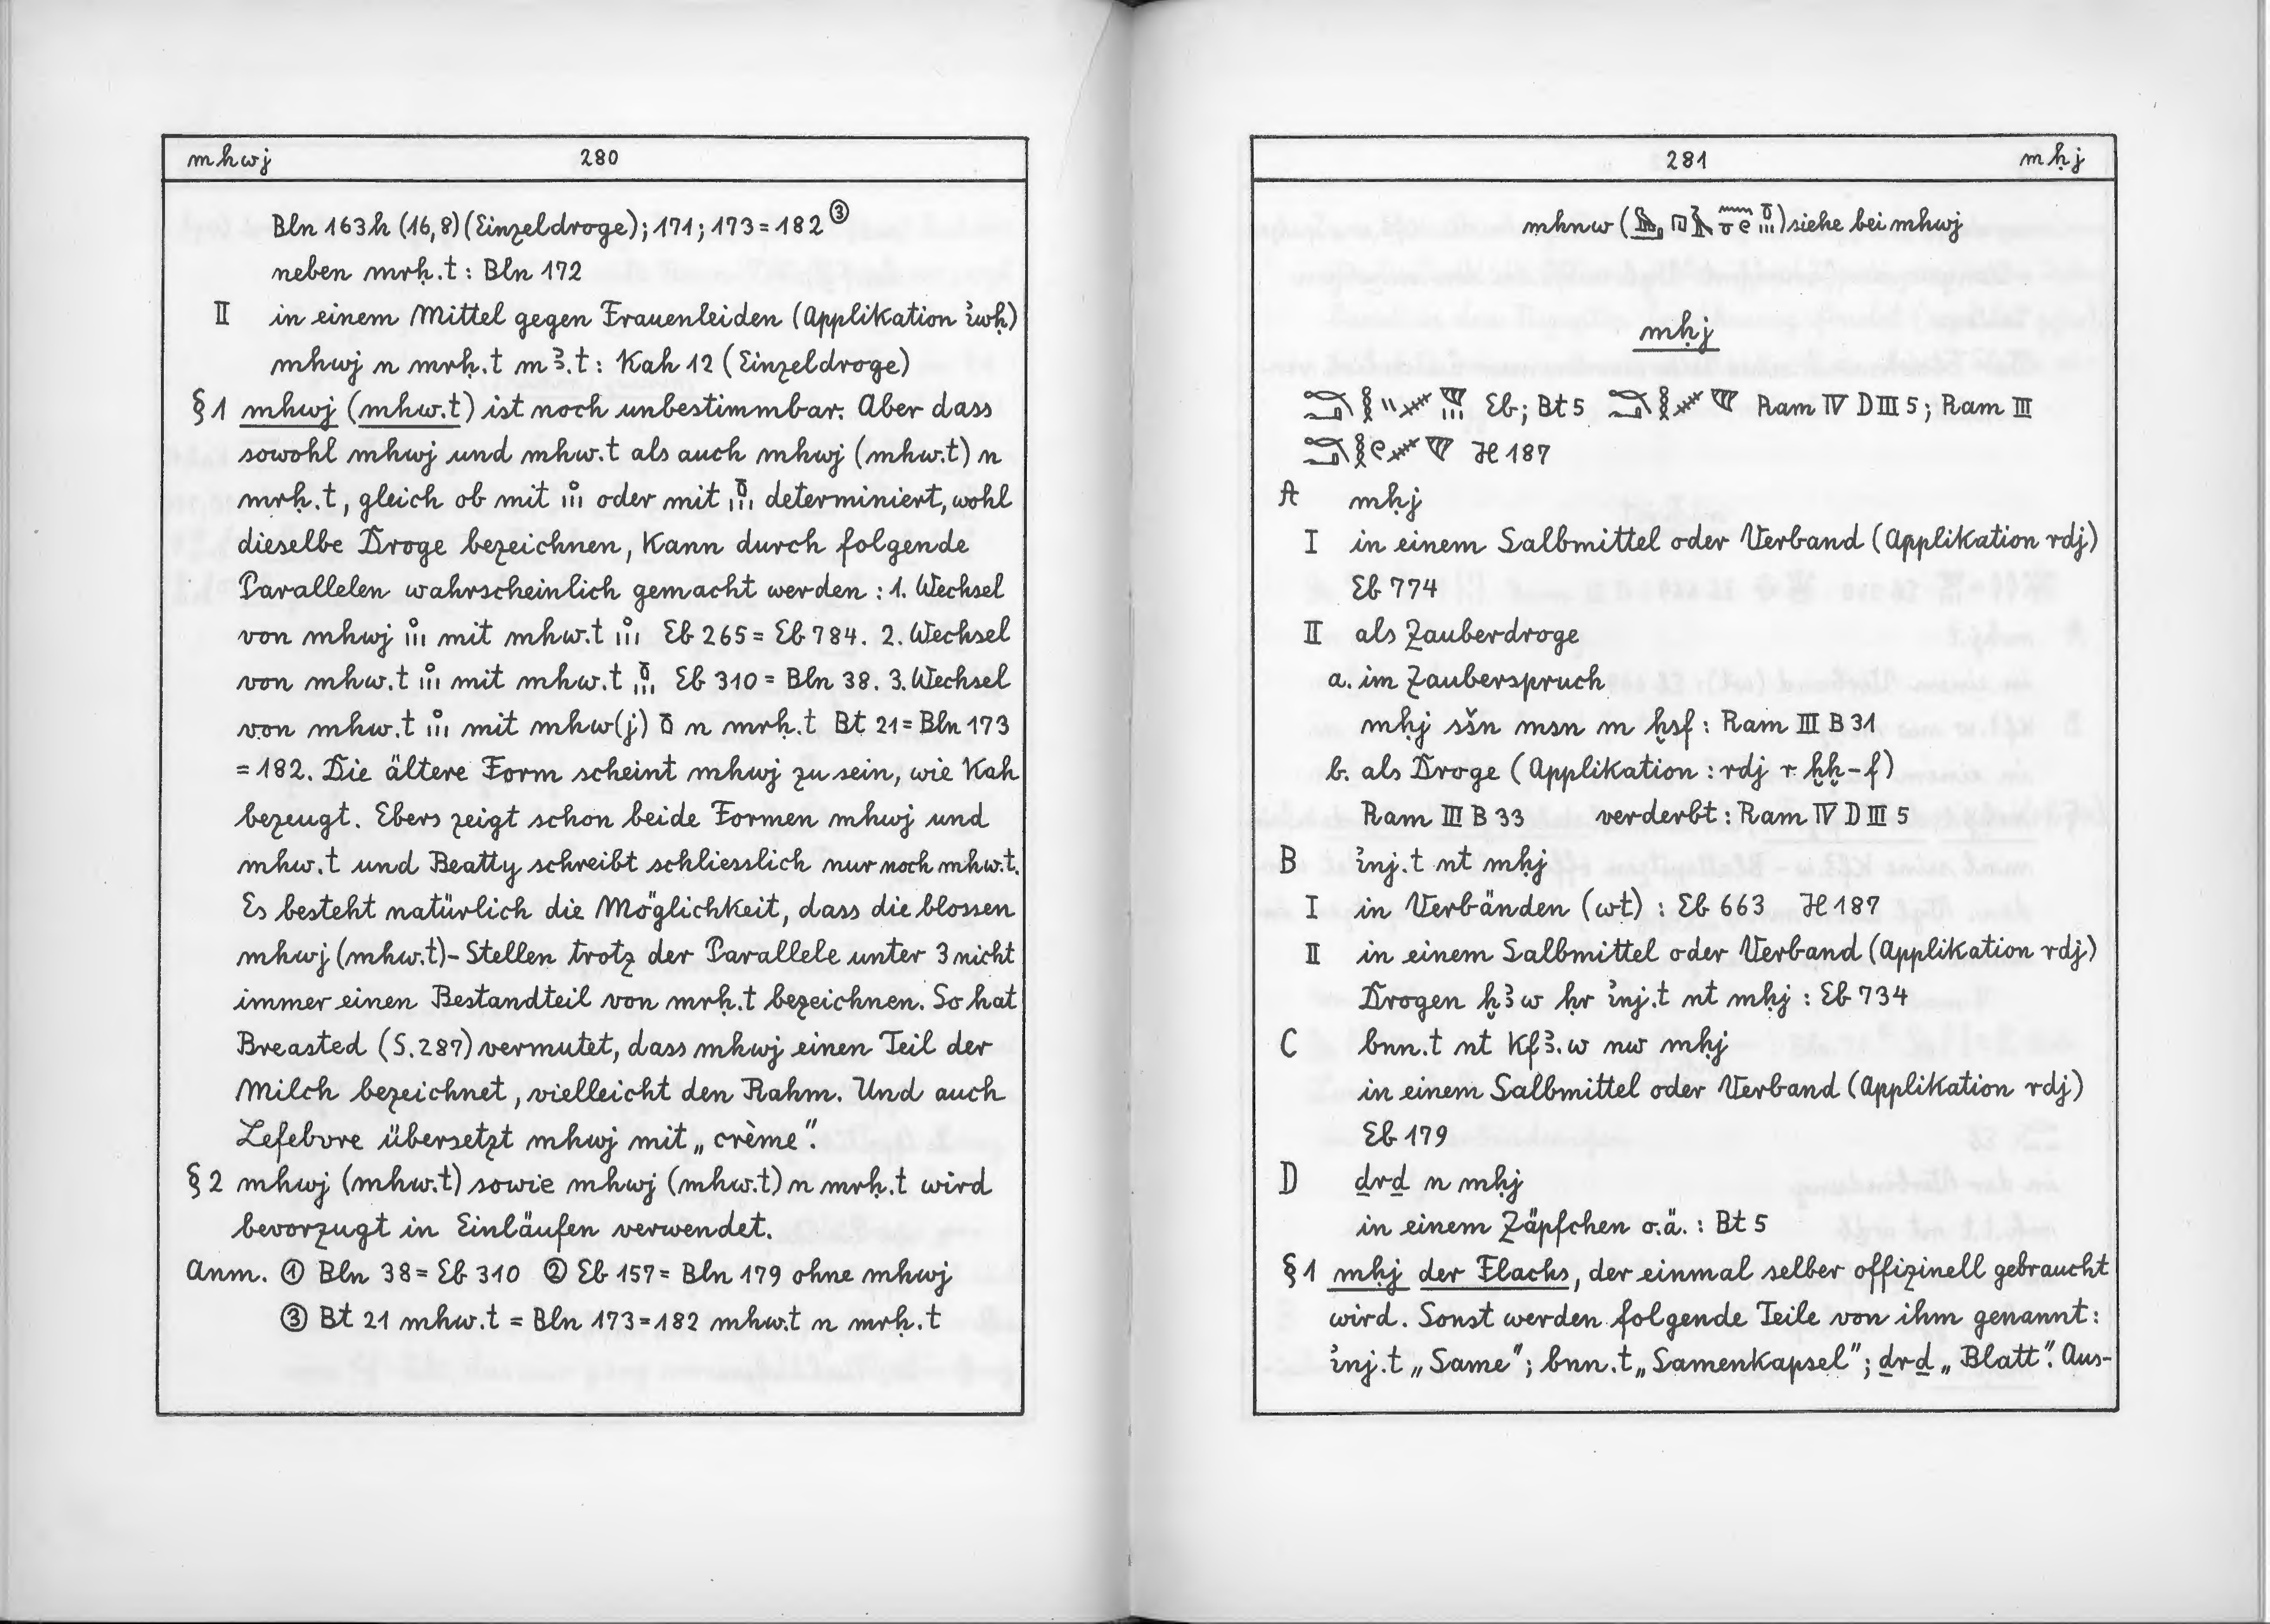 mhwj 280
Bln 163h (16,8) (Einzeldroge); 171; 173 = 182 ③
neben mrḥ.t : Bln 172
II in einem Mittel gegen Frauenleiden (Applikation ỉwḥ)
mhwj n mrḥ.t mꜣ.t : Kah 12 (Einzeldroge)
§ 1 mhwj (mhw.t) ist noch unbestimmbar. Aber dass
sowohl mhwj und mhw.t als auch mhwj (mhw.t) n
mrḥ.t, gleich ob mit 𓈒𓏥 oder mit 𓏊𓏥 determiniert, wohl
dieselbe Droge bezeichnen, kann durch folgende
Parallelen wahrscheinlich gemacht werden : 1. Wechsel
von mhwj 𓈒𓏥 mit mhw.t 𓈒𓏥 Eb 265 = Eb 784. 2. Wechsel
von mhw.t 𓈒𓏥 mit mhw.t 𓏊𓏥 Eb 310 = Bln 38. 3. Wechsel
von mhw.t 𓈒𓏥 mit mhw(j) 𓏊 n mrḥ.t Bt 21 = Bln 173
= 182. Die ältere Form scheint mhwj zu sein, wie Kah
bezeugt. Ebers zeigt schon beide Formen mhwj und
mhw.t und Beatty schreibt schliesslich nur noch mhw.t.
Es besteht natürlich die Möglichkeit, dass die blossen
mhwj (mhw.t)- Stellen trotz der Parallele unter 3 nicht
immer einen Bestandteil von mrḥ.t bezeichnen. So hat
Breasted (S. 287) vermutet, dass mhwj einen Teil der
Milch bezeichnet, vielleicht den Rahm. Und auch
Lefebvre übersetzt mhwj mit „crème".
§ 2 mhwj (mhw.t) sowie mhwj (mhw.t) n mrḥ.t wird
bevorzugt in Einläufen verwendet.
Anm. ① Bln 38 = Eb 310 ② Eb 157 = Bln 179 ohne mhwj
③ Bt 21 mhw.t = Bln 173 = 182 mhw.t n mrḥ.t
281 mḥj
mhnw ( ) siehe bei mhwj
mḥj
Eb; Bt 5 Ram IV D III 5; Ram III
H 187
A mḥj
I in einem Salbmittel oder Verband (Applikation rdj)
Eb 774
II als Zauberdroge
a. im Zauberspruch
mḥj sšn msn m ḫsf : Ram III B 31
b. als Droge (Applikation : rdj r ḫḫ-f)
Ram III B 33 verderbt : Ram IV D III 5
B ỉnj.t nt mḥj
I in Verbänden (wt) : Eb 663 H 187
II in einem Salbmittel oder Verband (Applikation rdj)
Drogen ḫꜣw ḥr ỉnj.t nt mḥj : Eb 734
C bnn.t nt kfꜣ.w nw mḥj
in einem Salbmittel oder Verband (Applikation rdj)
Eb 179
D ḏrḏ n mḥj
in einem Zäpfchen o.ä. : Bt 5
§ 1 mḥj der Flachs, der einmal selber offizinell gebraucht
wird. Sonst werden folgende Teile von ihm genannt :
ỉnj.t „Same"; bnn.t „Samenkapsel"; ḏrḏ „Blatt". Aus-